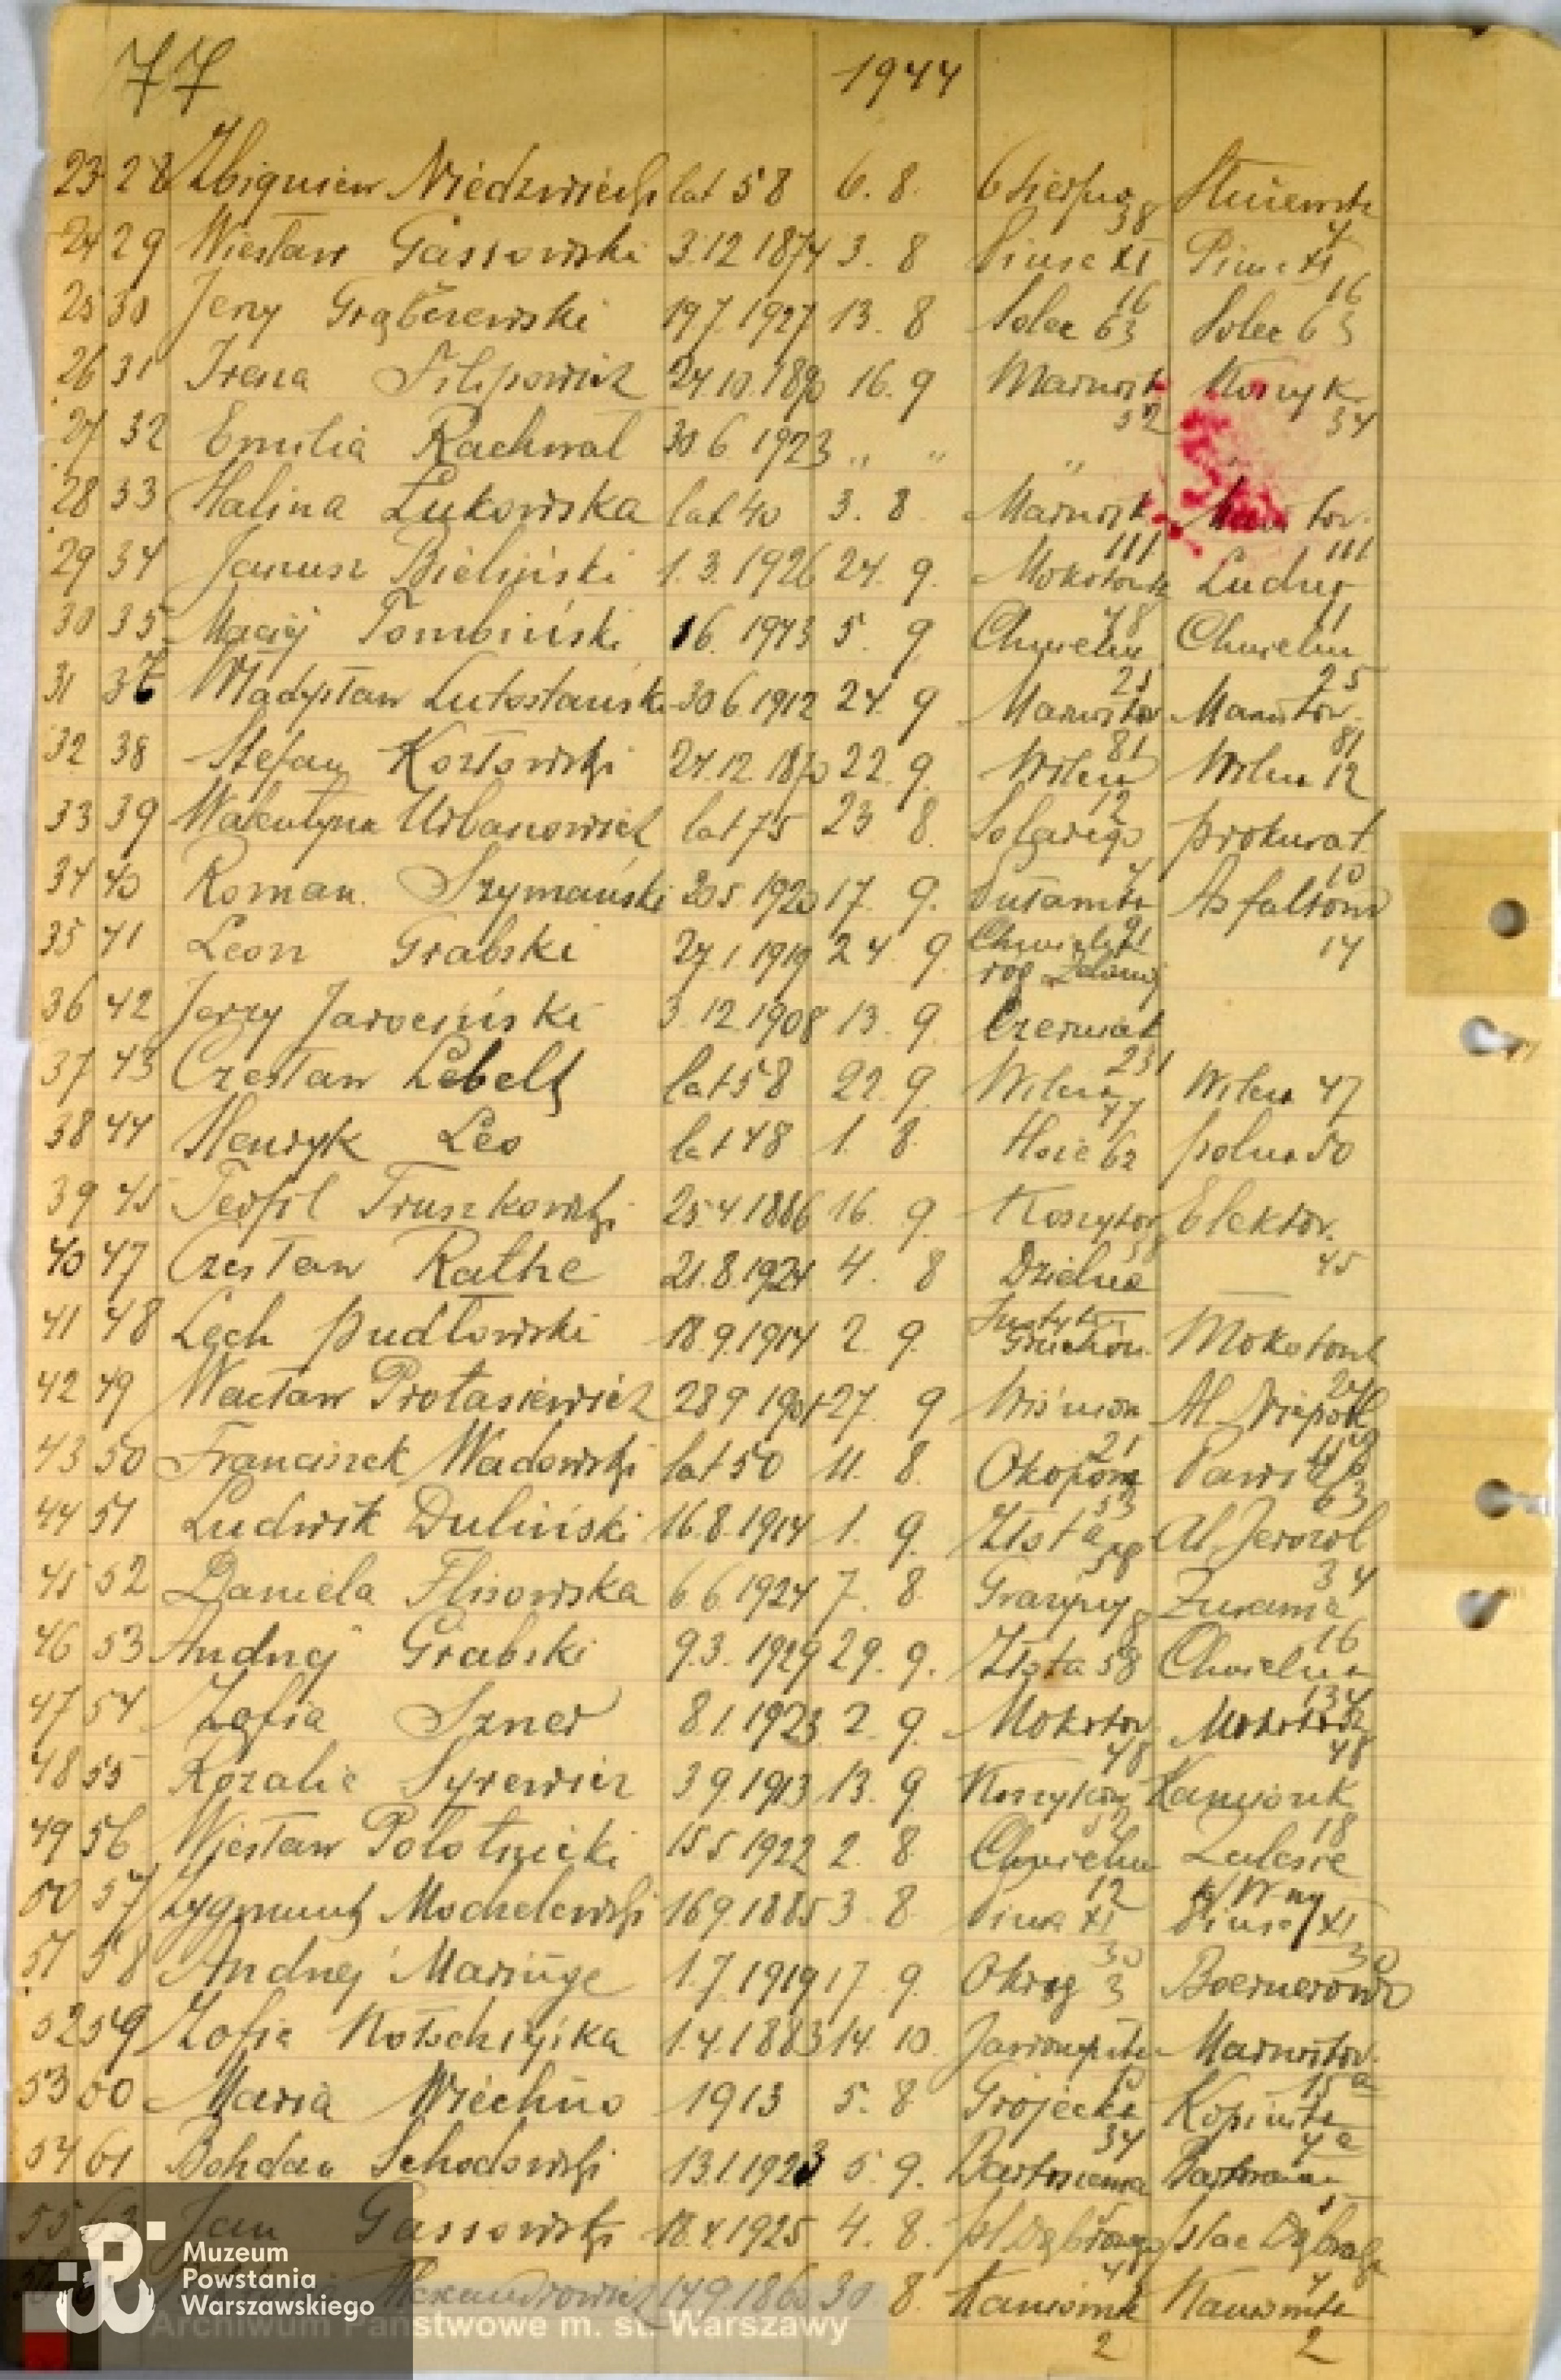 77 1944
23 28 Zbigniew Niedzwiecki lat 58 6. 8. 6 Sierpnia
38 4
24 29 Wiesław Gassowski 3.12 1874 3. 8 Piusa XI Pius XI
16 16
25 30 Jerzy Grąbczewski 19.7.1927 13. 8 Solec 63 Solec 63
26 31 Irena Filipowicz 24.10.1890 16. 9 Marszłk Koszyk
52 34
27 32 Emilia Rachwał 30 6 1923 " " " "
28 33 Halina Łukowska lat 40 3. 8 Marszłk
111 111
29 34 Janusz Bieliński 1. 3. 1926 24. 9. Mokotowsk Ludna
48 11
30 35 Maciej Tombiński 16. 1943 5. 9 Chmieln Chmieln
25 25
31 37 Władysław Lutostański 30 6 1912 24. 9 Marszłow Marszłow.
81 81
32 38 Stefan Kozłowski 24.12. 1870 22. 9. Wilcza Wilcza 12
12
33 39 Walentyna Urbanowicz lat 75 23 8. Solariego prokurat.
4 10
34 40 Roman Szymański 20 5 1920 17. 9. Puławska Asfaltowa
91
35 41 Leon Grabski 27.1.1919 24. 9 Chmieln 14
rog Żelaznej
36 42 Jerzy Jarociński 3.12.1908 13. 9 Czerniak
231
37 43 Czesław Lebelt lat 58 22. 9. Wilcza Wilcza 47
47
38 44 Henryk Leo lat 48 1. 8. Hoża 62 polna 50
39 45 Teofil Truszkowski 25.4.1886 16. 9 Koszykow Elektor.
58 45
40 47 Czesław Rathe 21.8.1924 4. 8 Dzielna —
41 48 Lech Pudłowski 18.9.1914 2. 9. Instytut Mokotowsk
Głuchon. 24
42 49 Wacław Protasiewicz 28 9 1901 27. 9 Wiśniow Al Niepodl
21
43 50 Franciszek Wadowski lat 50 11. 8. Okopowa Pawia
53 63
44 51 Ludwik Duliński 16.8.1914 1. 9. Złota Al Jerozol
58 34
45 52 Daniela Flisowska 6 6 1924 7. 8 Grażyny Żurawia
8 16
46 53 Andrzej Grabski 9.3. 1929 29. 9. Złota 58 Chmielna
47 54 Zofia Szner 8 1.1923 2. 9. Mokotow Mokotow
48 48
48 55 Rozalia Syrewicz 3 9.1913 13. 9. Koszykow Kamionk
52 18
49 56 Wiesław Połotnicki 15 5 1922 2. 8. Chmieln Zalesie
12 k/W-wy
50 57 Zygmunt Mochelewski 16 9.1885 3 8. Piusa XI Piusa XI
30 30
51 58 Andrzej Maringe 1.7.1919 17. 9. Okrąg 3 Boernerowo
52 59 Zofia 1.4.1883 14. 10. Marszłow.
15a
53 60 Maria Wiechno 1913 5. 8 Grójecka Kopińska
34 4a
54 61 Bohdan Schodowski 13.1.1923 5. 9. Bartoszewicza
55 63 Jan Gassowski 18.4.1925 4. 8. pl Dąbrowsk plac Dąbrowsk
4 4
Alexandrowicz 14.9.1860 30. 8. Kanionk
2 2
Muzeum
Powstania
Warszawskiego
Archiwum Państwowe m. st. Warszawy